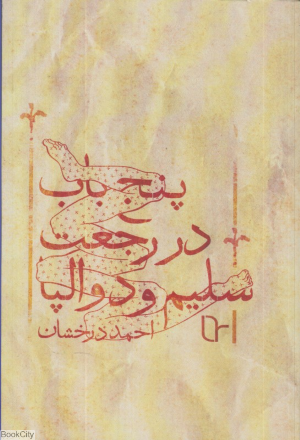 پنج باب
در رجعت
سلیم و دوالپا
احمد درخشان
BookCity